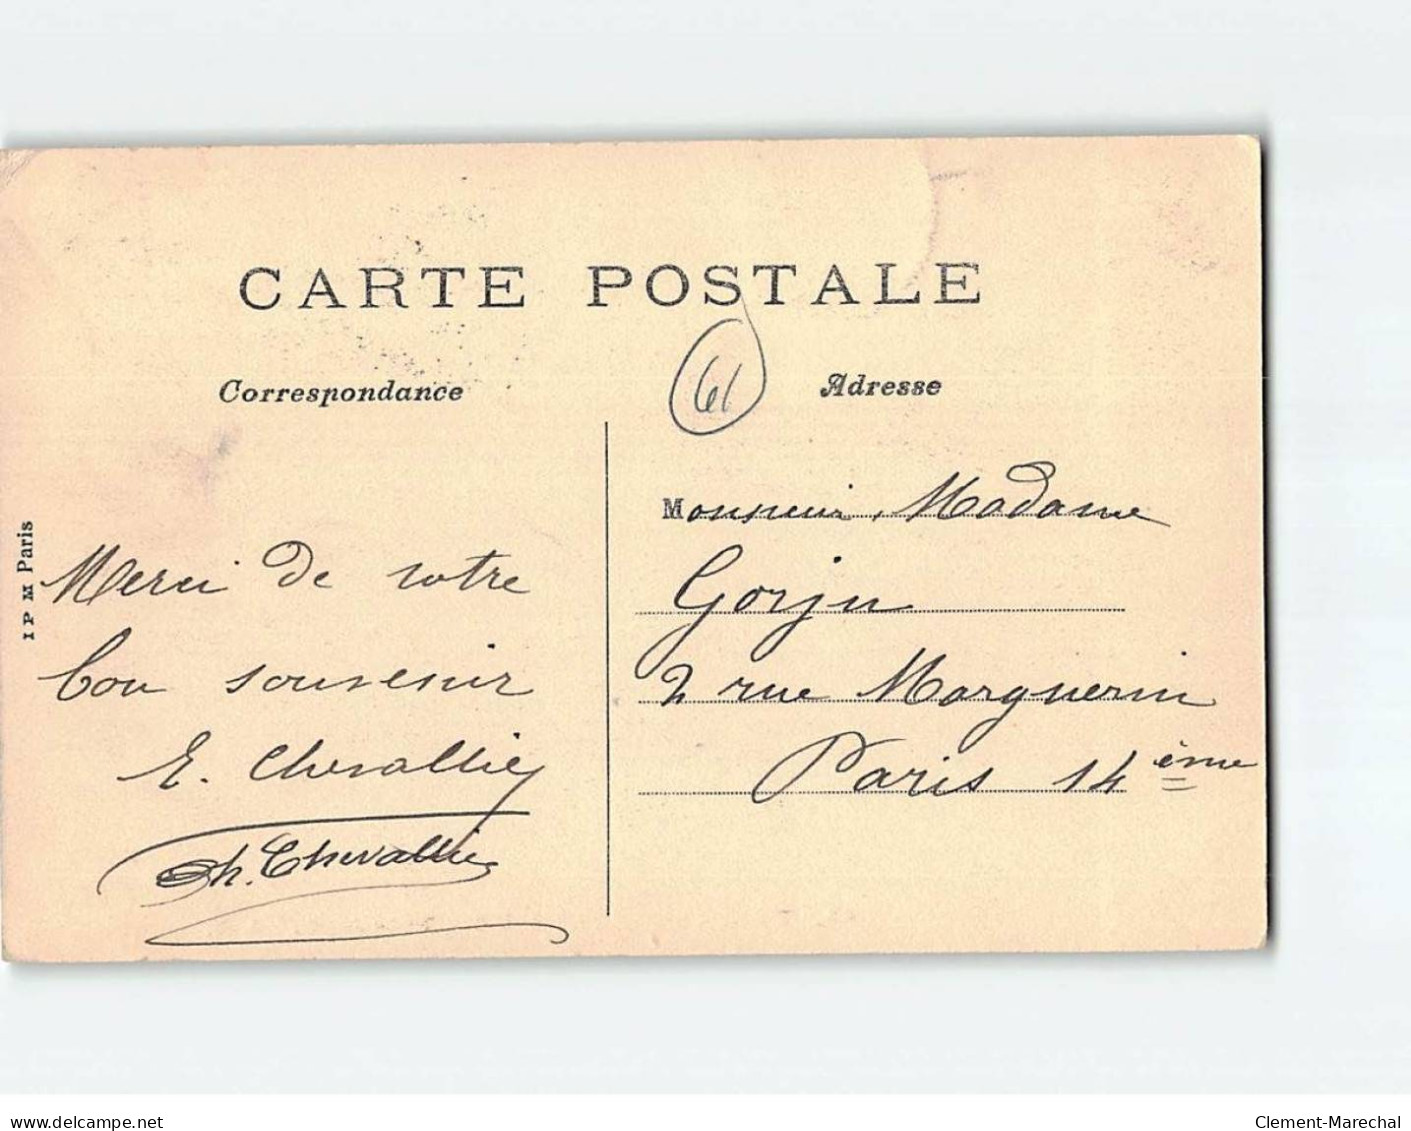 CARTE POSTALE
Correspondance
Adresse
61
I P M Paris
Merci de votre
bon souvenir
E. Chevallier
Ch. Chevallier
Monsieur, Madame
Gorju
2 rue Marguerin
Paris 14ème
delcampe.net
Clement-Marechal